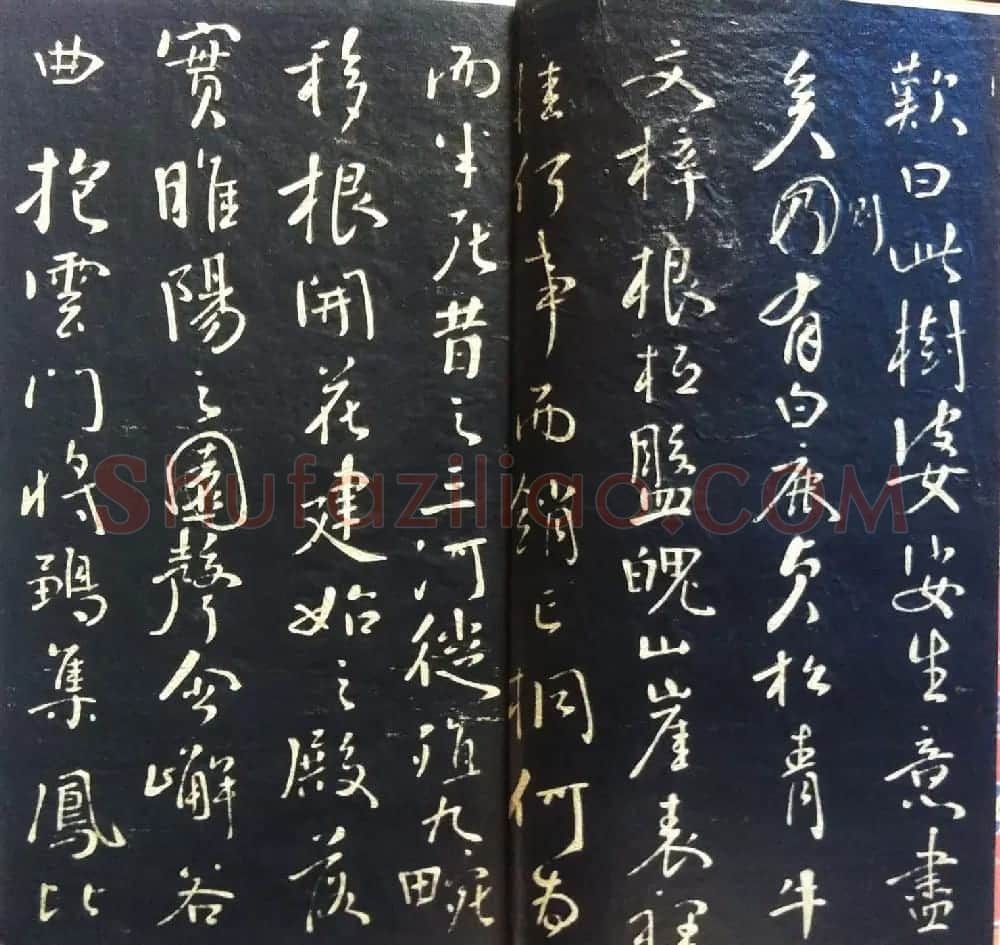 歎曰此樹婆娑生意盡
矣則有白鹿貞松青牛
文梓根柢盤魄山崖表裏
桂何事而銷亡桐何為
而半死昔之三河徙殖九畹
移根開花建始之殿落
實睢陽之園聲含嶰谷
曲抱雲門將鶵集鳳比
Shufaziliao.COM